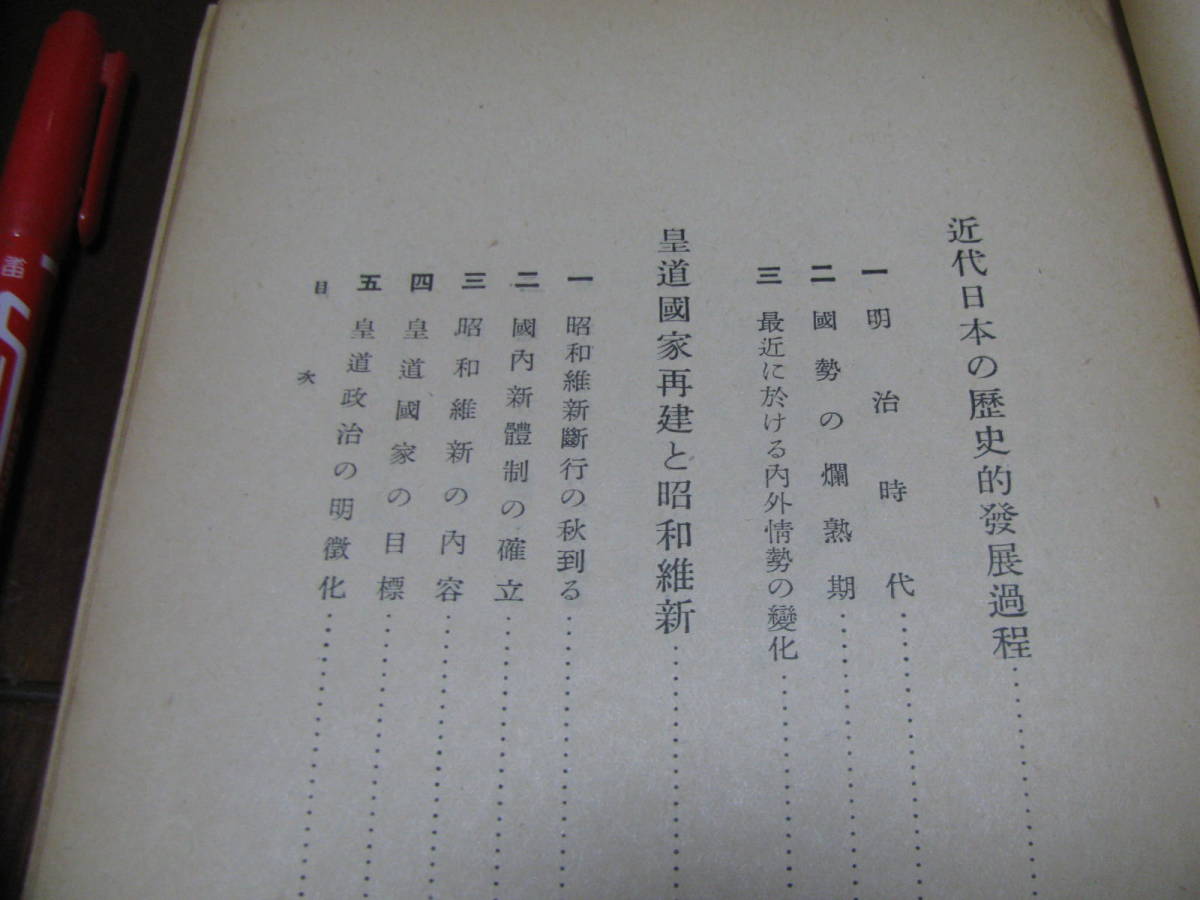 近代日本の歷史的發展過程
一 明治時代
二 國勢の爛熟期
三 最近に於ける內外情勢の變化
皇道國家再建と昭和維新
一 昭和維新斷行の秋到る
二 國內新體制の確立
三 昭和維新の內容
四 皇道國家の目標
五 皇道政治の明徵化
目次